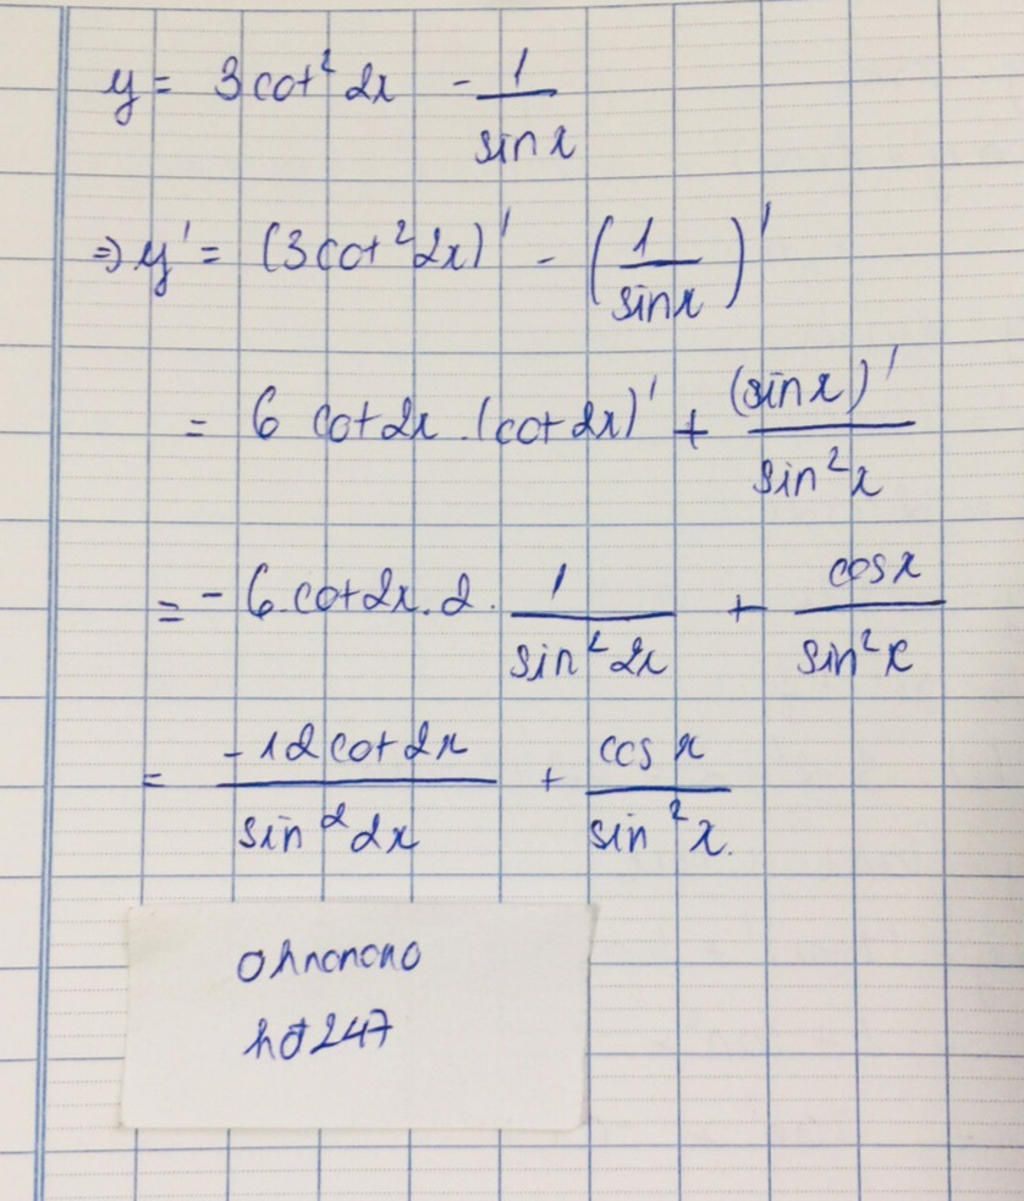 y = 3cot² 2x - 1/sin x
⇒ y' = (3cot² 2x)' - (1/sin x)'
= 6 cot 2x . (cot 2x)' + (sin x)'/sin² x
= - 6.cot 2x. 2. 1/sin² 2x + cos x/sin² x
= -12 cot 2x/sin² 2x + cos x/sin² x.
ohnonono
hđ247